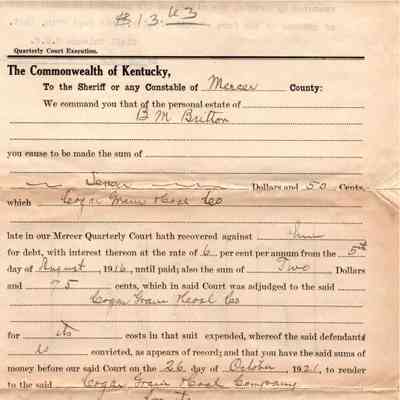 Quarterly Court Execution.
The Commonwealth of Kentucky,
To the Sheriff or any Constable of Mercer County:
We command you that of the personal estate of
B M Britton
you cause to be made the sum of
Seven Dollars and 50 Cents,
which Cogar Grain & Coal Co
late in our Mercer Quarterly Court hath recovered against him
for debt, with interest thereon at the rate of 6 per cent per annum from the 5th
day of August, 1916, until paid; also the sum of Two Dollars
and 75 cents, which in said Court was adjudged to the said
Cogar Grain & Coal Co
for its costs in that suit expended, whereof the said defendant
is convicted, as appears of record; and that you have the said sums of
money before our said Court on the 26 day of October, 1921, to render
to the said Cogar Grain & Coal Company